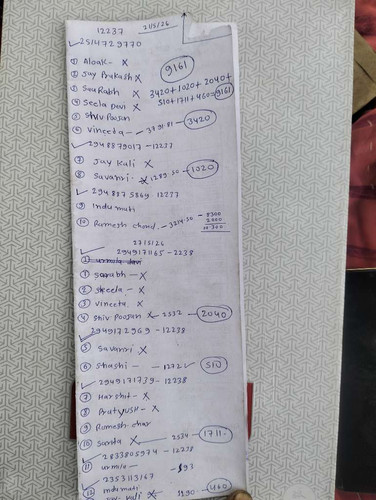 12237 21/5/26
✓2514729770
① Aloak - X
② Jay Prakash X 9161
③ Saurabh X 3420+1020+2040+
④ Seela Davi X 510+1711+460=9161
⑤ Shiv Poojan
⑥ Vineeta - 3420
✓ 2948879017 - 12237
⑦ Jay Kali X
⑧ Savanri - X 1289.50 - 1020
✓ 2948875869 12277
⑨ Indumati
⑩ Ramesh chand - 3214.50 - 8300
2000
10300
27/5/26
✓ 2949171165 - 2238
① Saurabh - X
② Sheela - X
③ Vineeta X
④ Shiv Poojan X 2532 - 2040
2949172969 - 12238
⑤ Savanri X
⑥ Shashi - 1272 ✓ 510
✓ 2949171739 - 12238
⑦ Harshit - X
⑧ Pratyush - X
⑨ Ramesh char
⑩ Sarita X 2534 - 1711
✓ 2833805974 - 12238
⑪ urmila - 593
✓ 2353113167
⑫ Indumati 460
Kali X